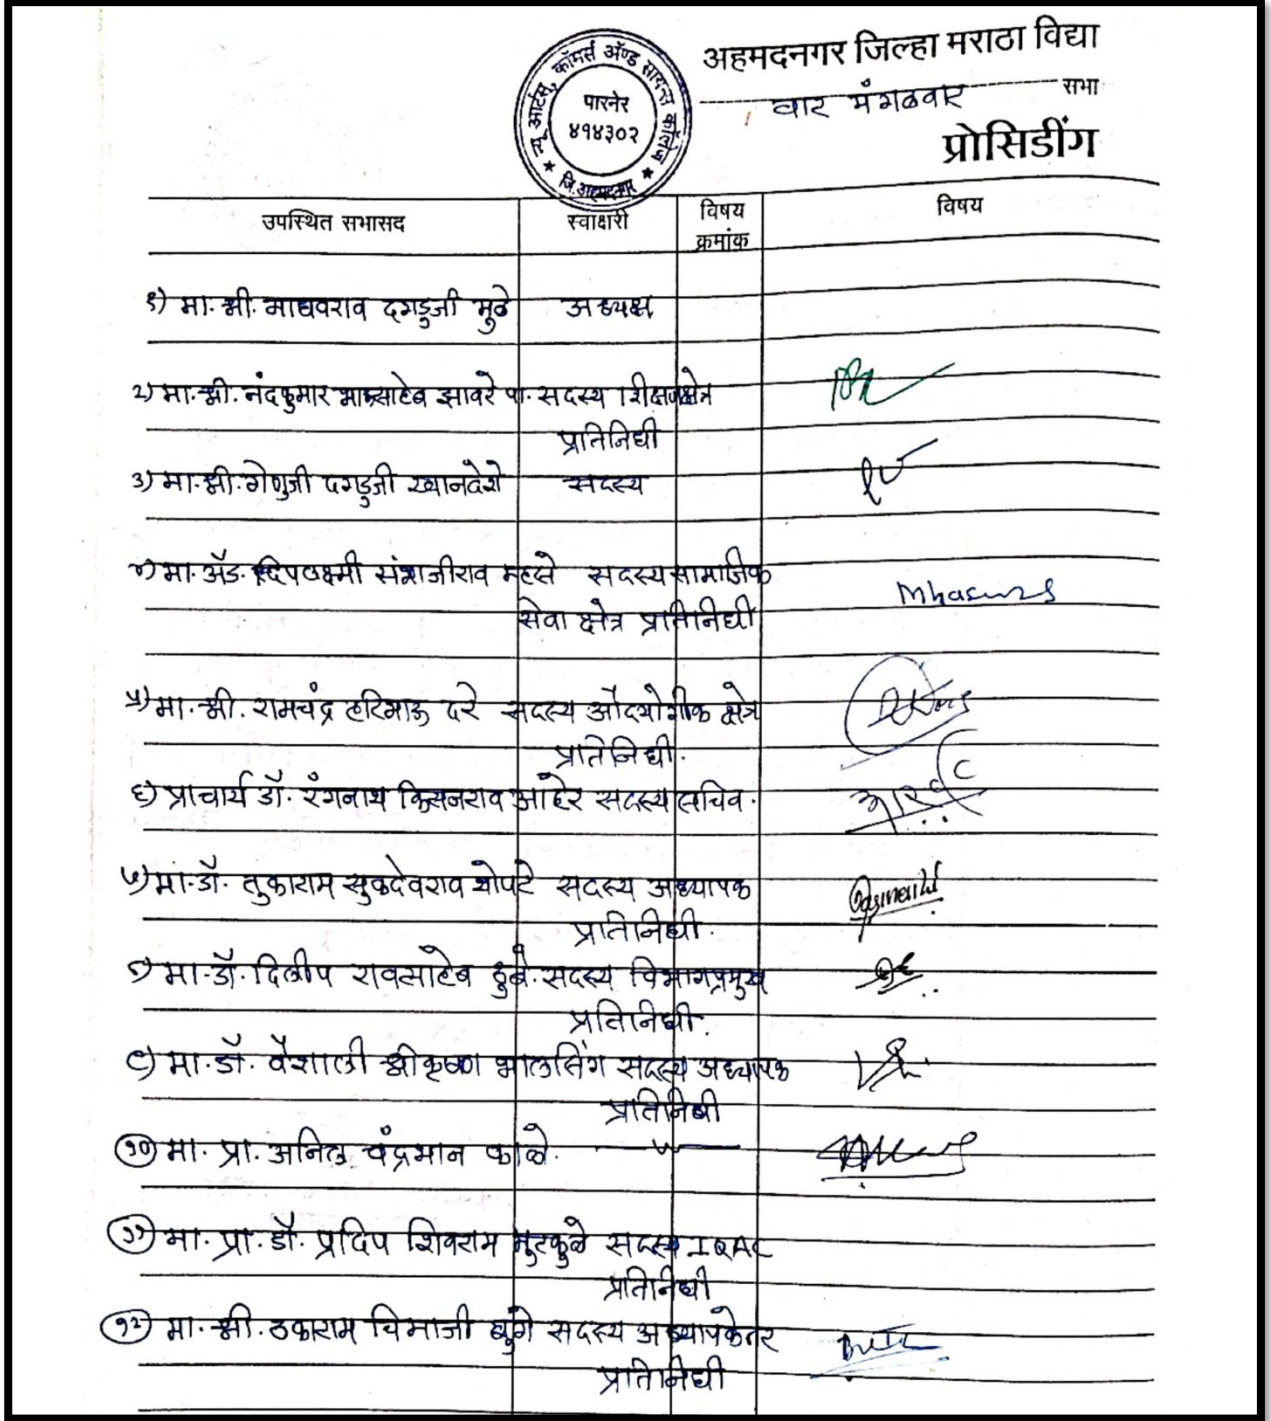 न्यू आर्टस्, कॉमर्स अ‍ॅण्ड सायन्स कॉलेज
पारनेर
४१४३०२
★ जि.अहमदनगर ★
अहमदनगर जिल्हा मराठा विद्या
वार मंगळवार सभा
प्रोसिडींग
उपस्थित सभासद स्वाक्षरी विषय क्रमांक विषय
१) मा. श्री. माधवराव दगडुजी मुळे अध्यक्ष
२) मा. श्री. नंदकुमार भाऊसाहेब झावरे पा. सदस्य शिक्षणक्षेत्र
प्रतिनिधी
३) मा. श्री. गेणुजी दगडुजी खानदेशे सदस्य
४) मा. अ‍ॅड. दिपलक्ष्मी संभाजीराव म्हसे सदस्य सामाजिक
सेवा क्षेत्र प्रतिनिधी
Mhasems
५) मा. श्री. रामचंद्र हरिभाऊ दरे सदस्य औदयोगीक क्षेत्र
प्रतिनिधी.
६) प्राचार्य डॉ. रंगनाथ किसनराव आहेर सदस्य सचिव.
७) मा. डॉ. तुकाराम सुकदेवराव थोपटे सदस्य अध्यापक
प्रतिनिधी.
८) मा. डॉ. दिलीप रावसाहेब ठुबे. सदस्य विभागप्रमुख
प्रतिनिधी.
९) मा. डॉ. वैशाली श्रीकृष्ण भालसिंग सदस्य अध्यापक
प्रतिनिधी
१०) मा. प्रा. अनिल चंद्रभान काळे. —〃—
११) मा. प्रा. डॉ. प्रदिप शिवराम मुटकुळे सदस्य IQAC
प्रतिनिधी
१२) मा. श्री. ठकाराम चिमाजी घुगे सदस्य अध्यापकेतर
प्रतिनिधी